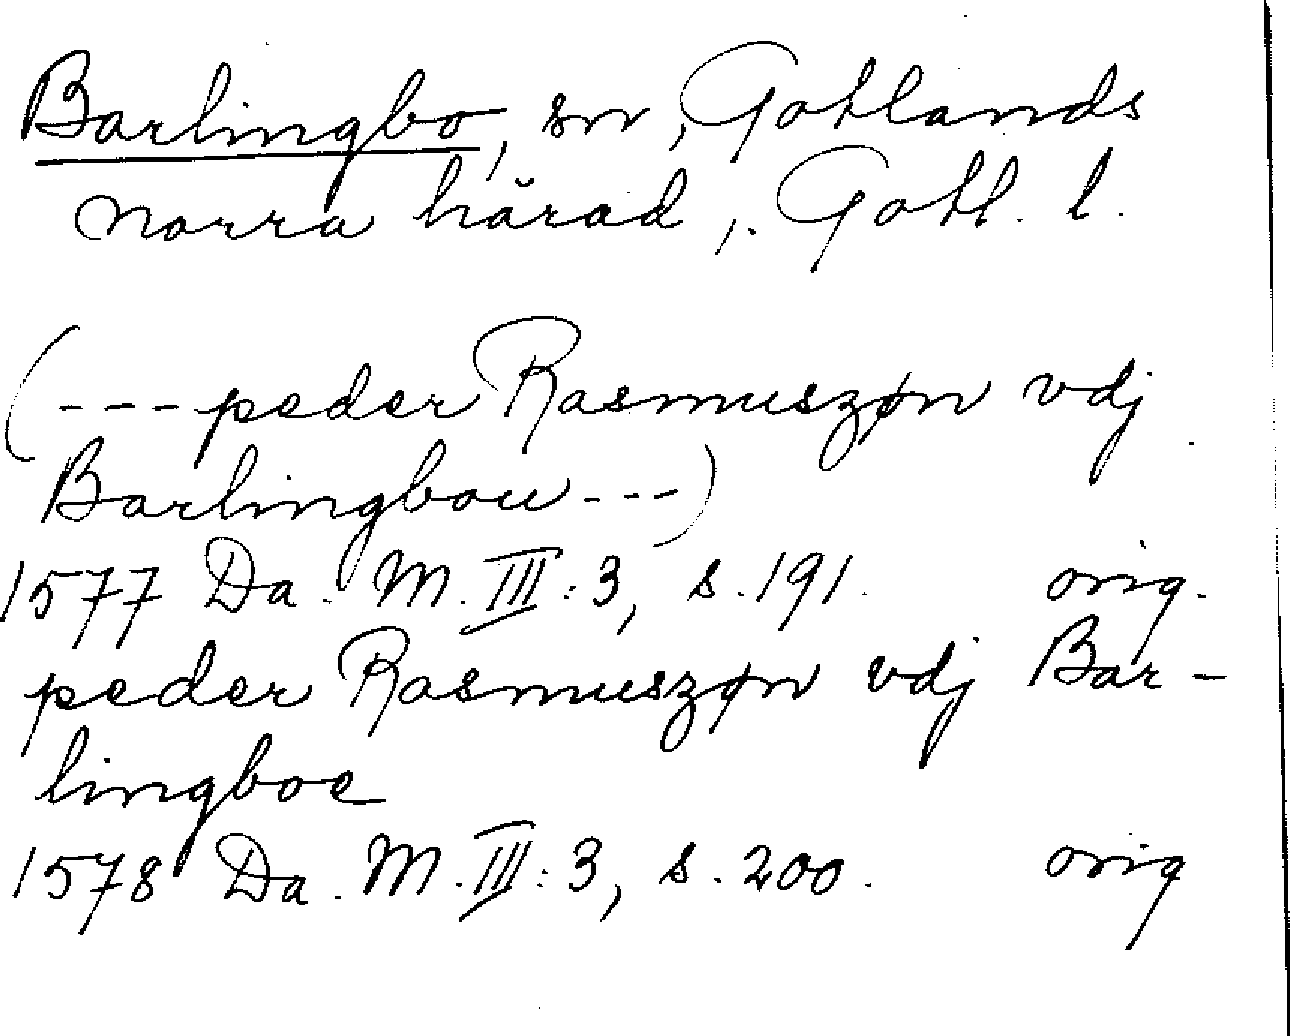 Barlingbo, sn, Gotlands
norra härad, Gotl. l.
(--- peder Rasmuszøn vdj
Barlingbou ---)
1577 Da. M. III: 3, s. 191. orig.
peder Rasmuszøn vdj Bar-
lingboe
1578 Da. M. III: 3, s. 200. orig